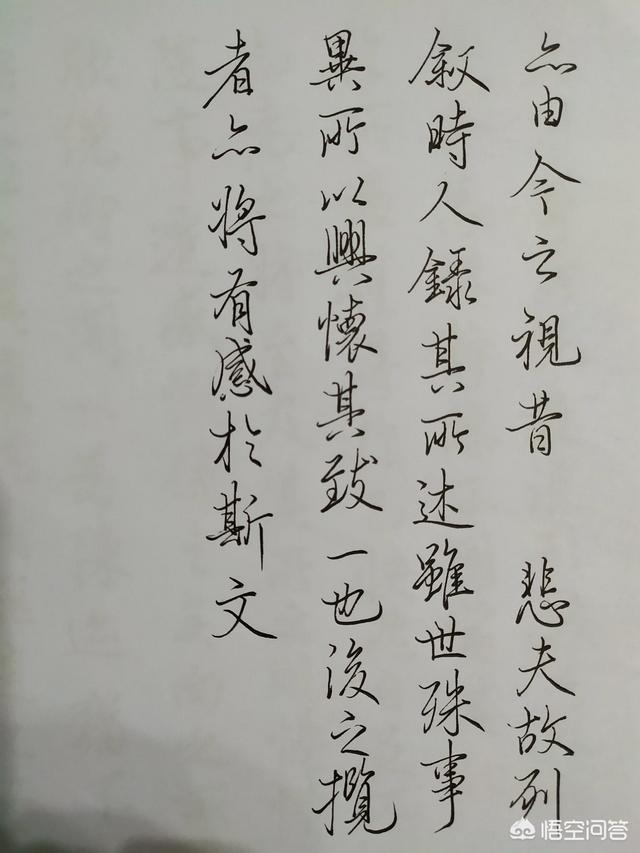 亦由今之視昔 悲夫故列
叙時人錄其所述雖世殊事
異所以興懷其致一也後之攬
者亦將有感於斯文
悟空问答